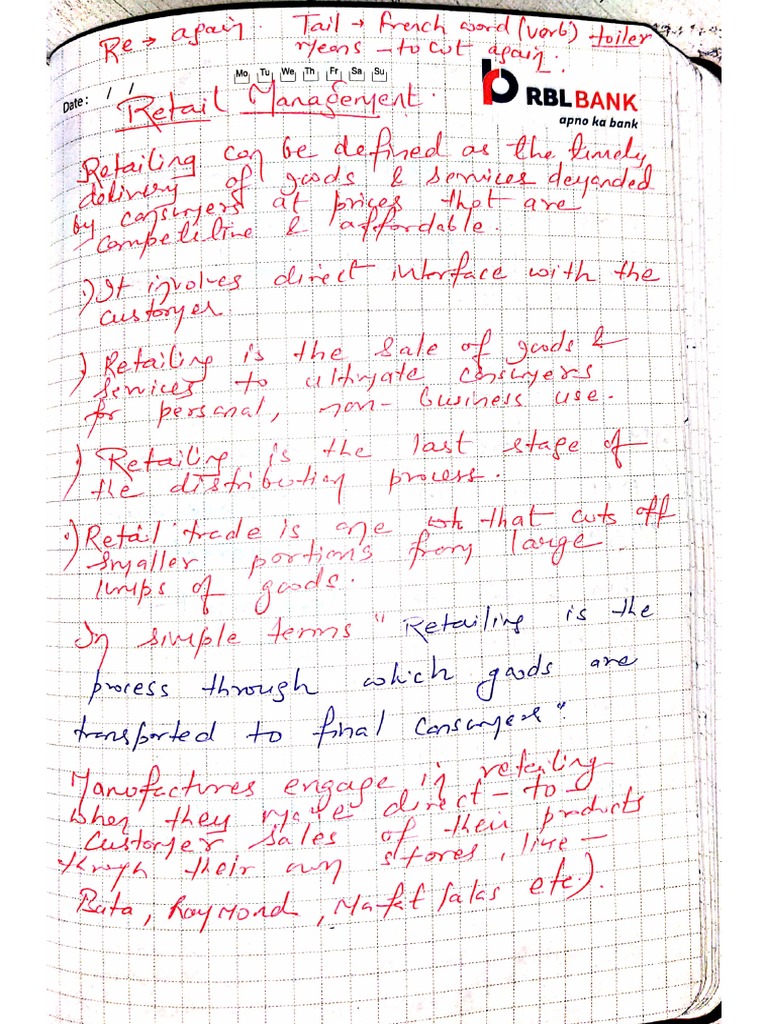 Re → again. Tail → french word (verb) toiler
means - to cut again.
Mo Tu We Th Fr Sa Su
Date : / /
RBL BANK
apno ka bank
Retail Management.
Retailing can be defined as the timely
delivery of goods & services demanded
by consumers at prices that are
competetive & affordable.
.) It involves direct interface with the
customer.
.) Retailing is the sale of goods &
services to ultimate consumers
for personal, non-business use.
.) Retailing is the last stage of
the distribution process.
.) Retail trade is one that cuts off
smaller portions from large
lumps of goods.
In simple terms "Retailing is the
process through which goods are
transported to final consumers".
Manufactures engage in retailing
when they make direct-to-
customer sales of their products
through their own stores, like-
Bata, Raymond, etc.).